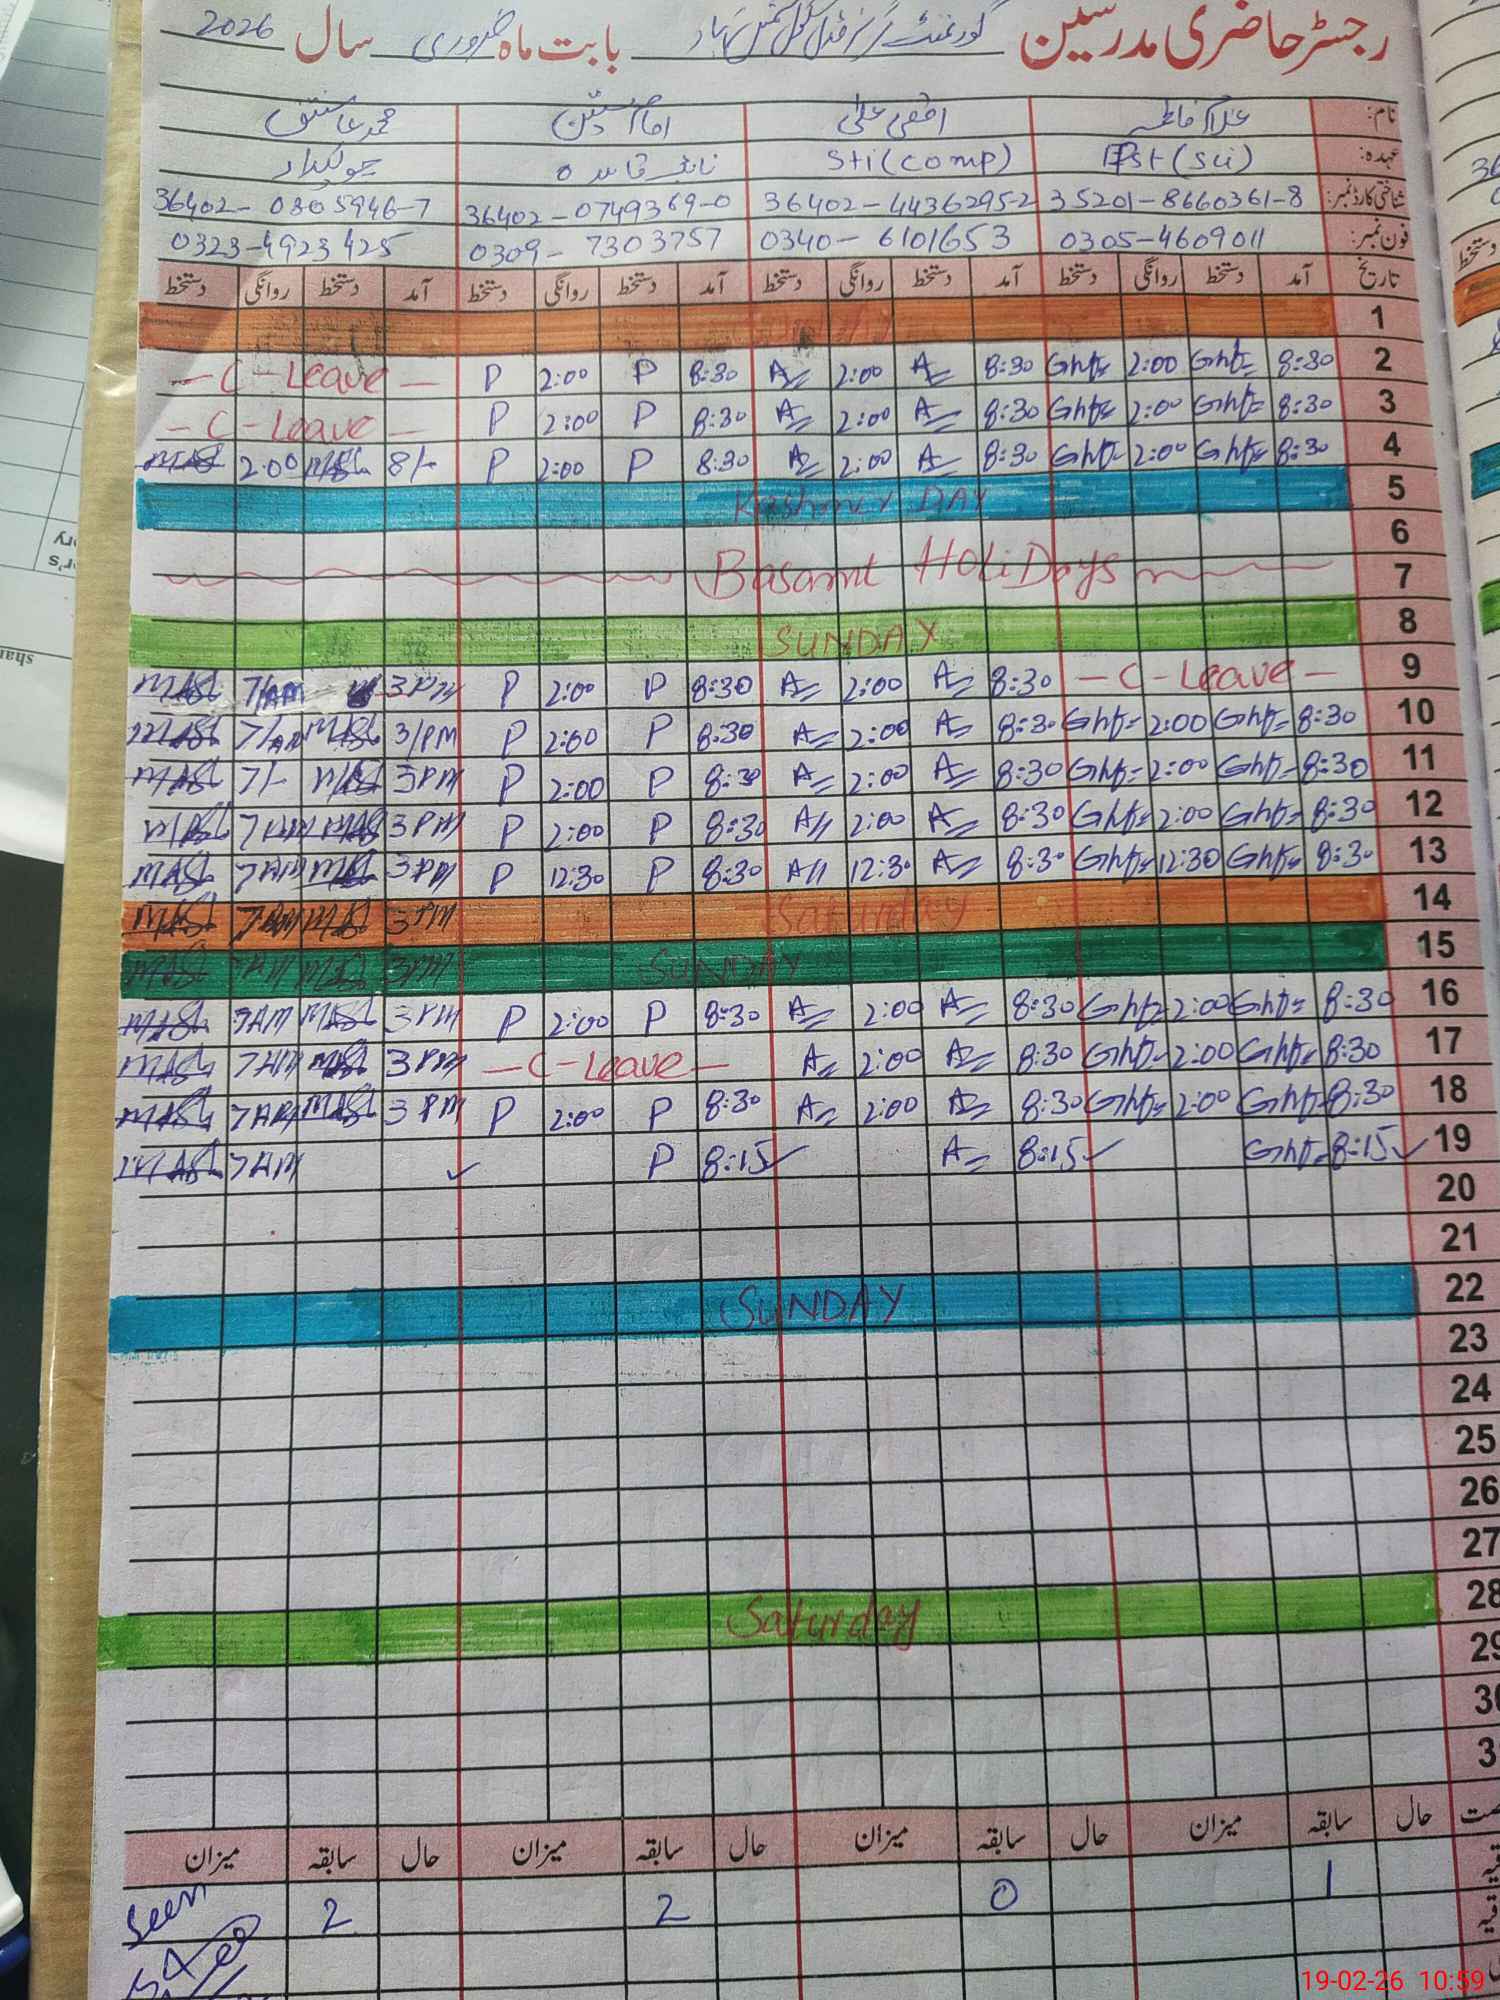 رجسٹر حاضری مدرسین گورنمنٹ گرلز مڈل سکول بابت ماہ فروری سال 2026
نام: فاطمہ علی امام دین محمد عاشق
عہدہ: Est (sci) Sti (comp) نائب قاصد چوکیدار
شناختی کارڈ نمبر: 35201-8660361-8 36402-44362952 36402-0749369-0 36402-0805946-7
فون نمبر: 0305-4609011 0340-6101653 0309-7303757 0323-4923425
تاریخ آمد دستخط روانگی دستخط آمد دستخط روانگی دستخط آمد دستخط روانگی دستخط آمد دستخط روانگی دستخط
1
— C - Leave — P 2:00 P 8:30 A 2:00 A 8:30 2:00 8:30 2
— C - Leave — P 2:00 P 8:30 A 2:00 A 8:30 2:00 8:30 3
2:00 8/- P 2:00 P 8:30 A 2:00 A 8:30 2:00 8:30 4
Kashmir DAY 5
6
Basant HoliDays 7
SUNDAY 8
7/AM 3PM P 2:00 P 8:30 A 2:00 A 8:30 — C - Leave — 9
7/AM 3/PM P 2:00 P 8:30 A 2:00 A 8:30 2:00 8:30 10
7/- 3PM P 2:00 P 8:30 A 2:00 A 8:30 2:00 8:30 11
7AM 3PM P 2:00 P 8:30 A 2:00 A 8:30 2:00 8:30 12
7AM 3PM P 12:30 P 8:30 A 12:30 A 8:30 12:30 8:30 13
7AM 3PM Saturday 14
7AM 3PM SUNDAY 15
7AM 3PM P 2:00 P 8:30 A 2:00 A 8:30 2:00 8:30 16
7AM 3PM — C - Leave — A 2:00 A 8:30 2:00 8:30 17
7AM 3PM P 2:00 P 8:30 A 2:00 A 8:30 2:00 8:30 18
7AM P 8:15 A 8:15 8:15 19
20
21
SUNDAY 22
23
24
25
26
27
Saturday 28
29
30
3
حال سابقہ میزان حال سابقہ میزان حال سابقہ میزان حال سابقہ میزان
Seen 2 2 0 1
19-02-26 10:59